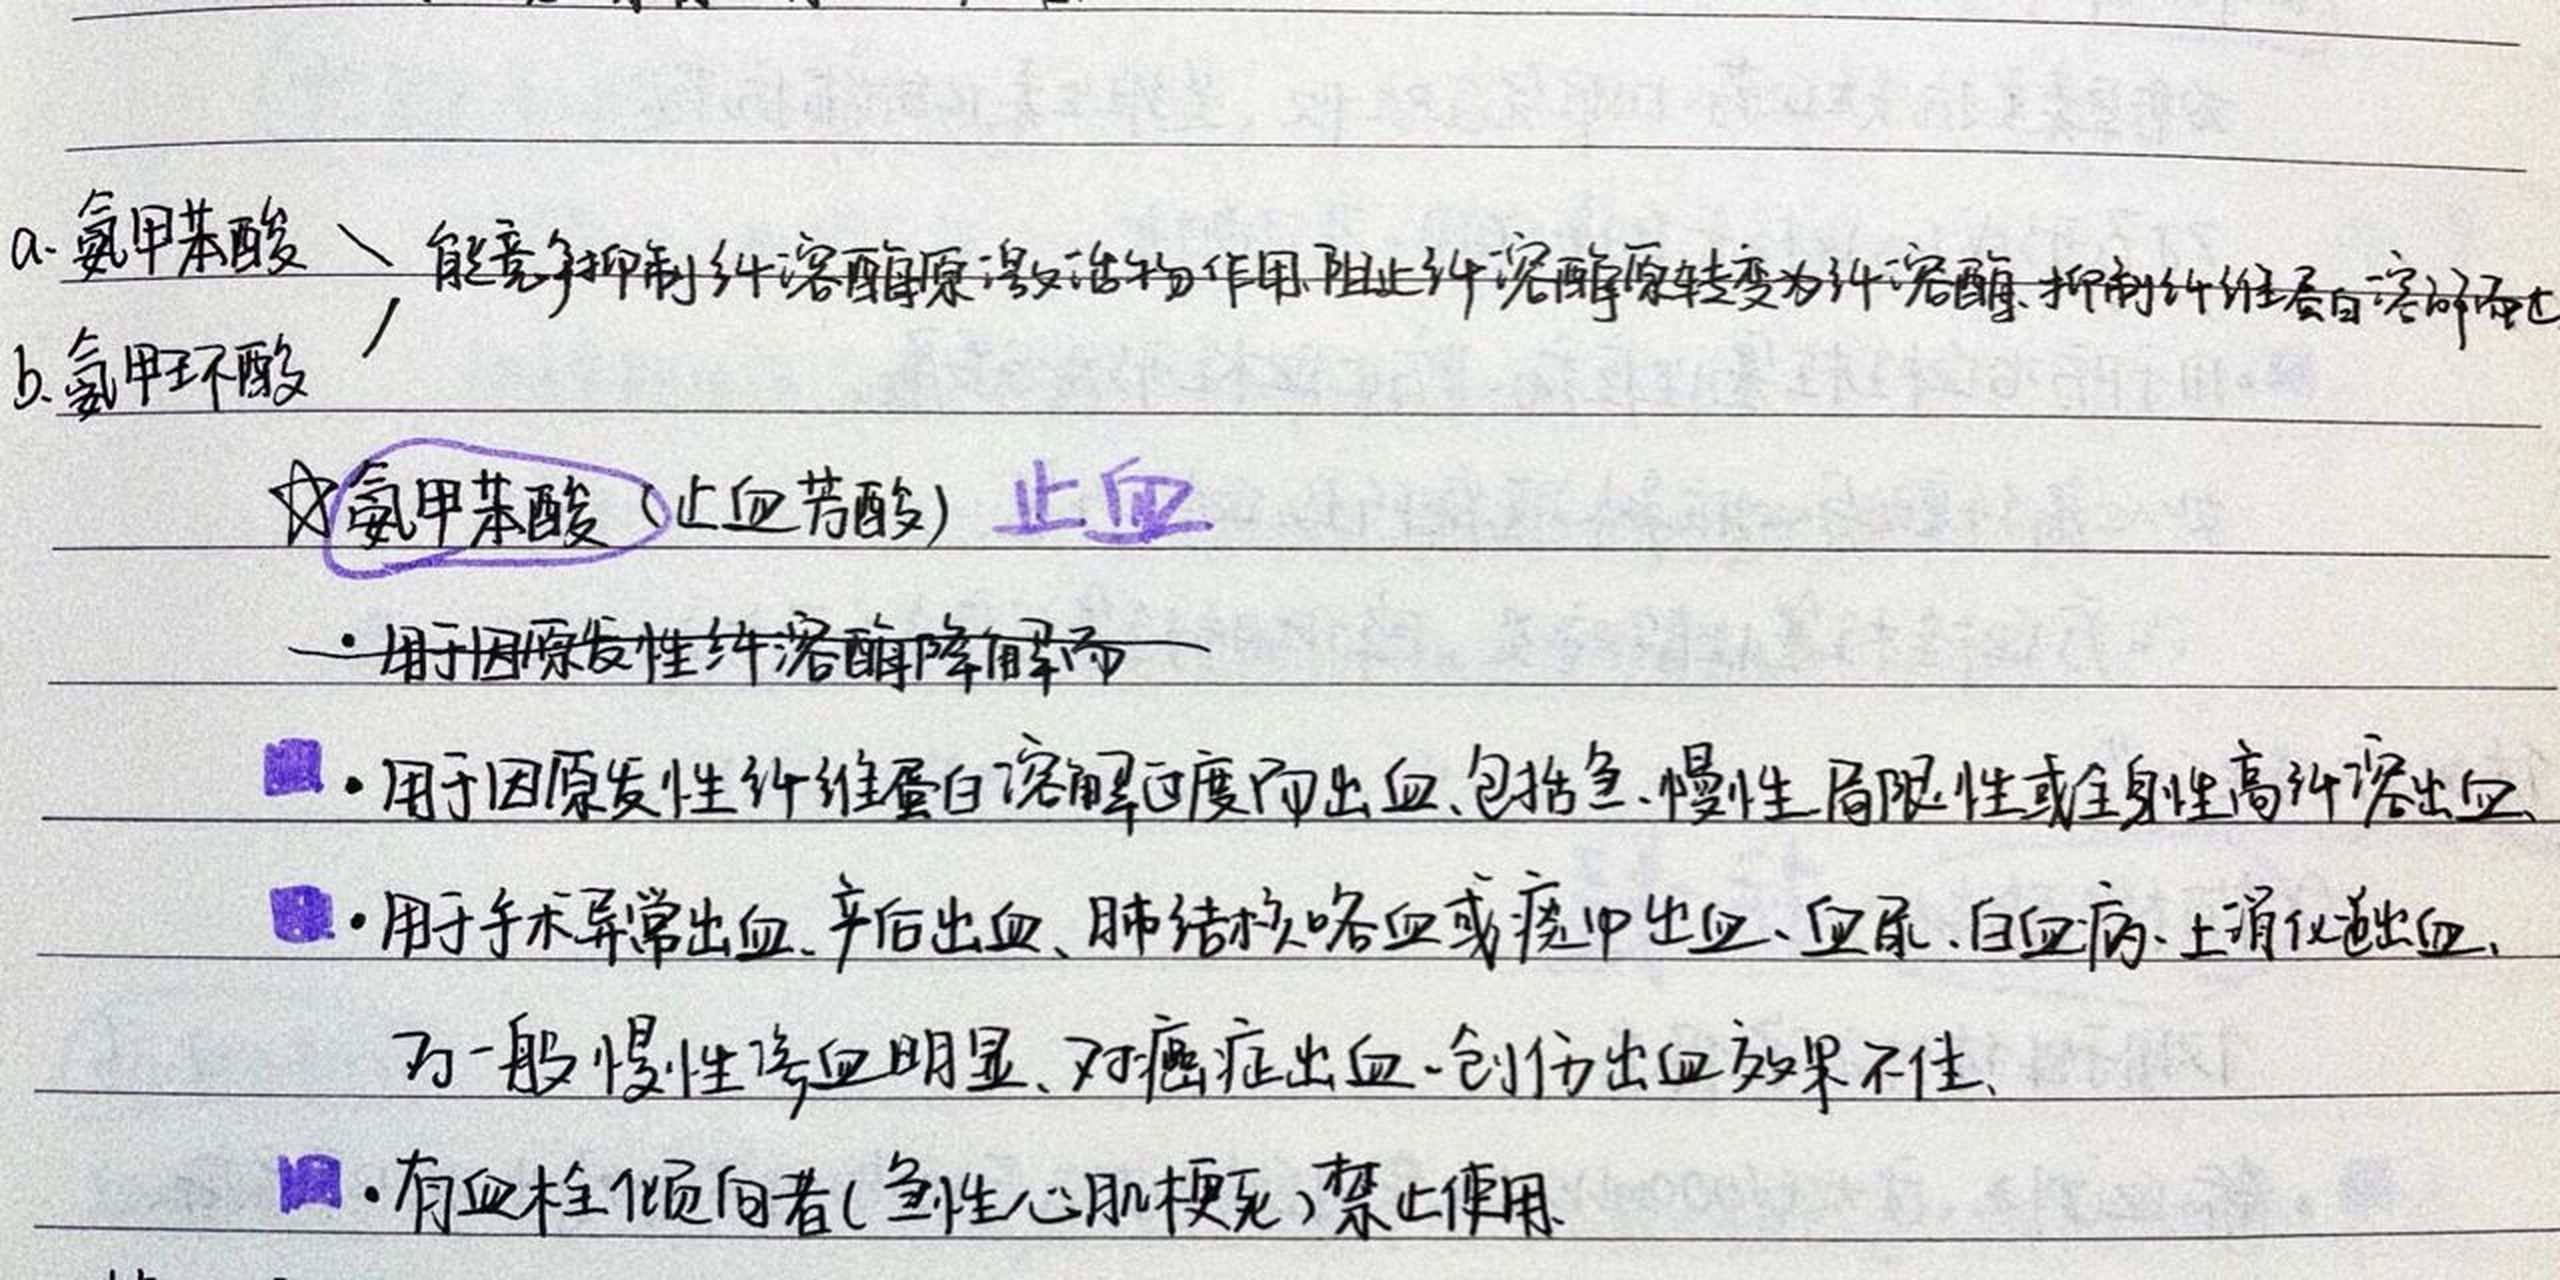 a. 氨甲苯酸
能竞争抑制纤溶酶原激活物作用、阻止纤溶酶原转变为纤溶酶、抑制纤维蛋白溶解而止
b. 氨甲环酸
☆氨甲苯酸（止血芳酸） 止血
· 用于因原发性纤溶酶降解而
· 用于因原发性纤维蛋白溶解过度而出血、包括急、慢性、局限性或全身性高纤溶出血、
· 用于手术异常出血、产后出血、肺结核咯血或痰中出血、血尿、白血病、上消化道出血、
为一般慢性渗血明显、对癌症出血、创伤出血效果不佳、
· 有血栓倾向者（急性心肌梗死）禁止使用、